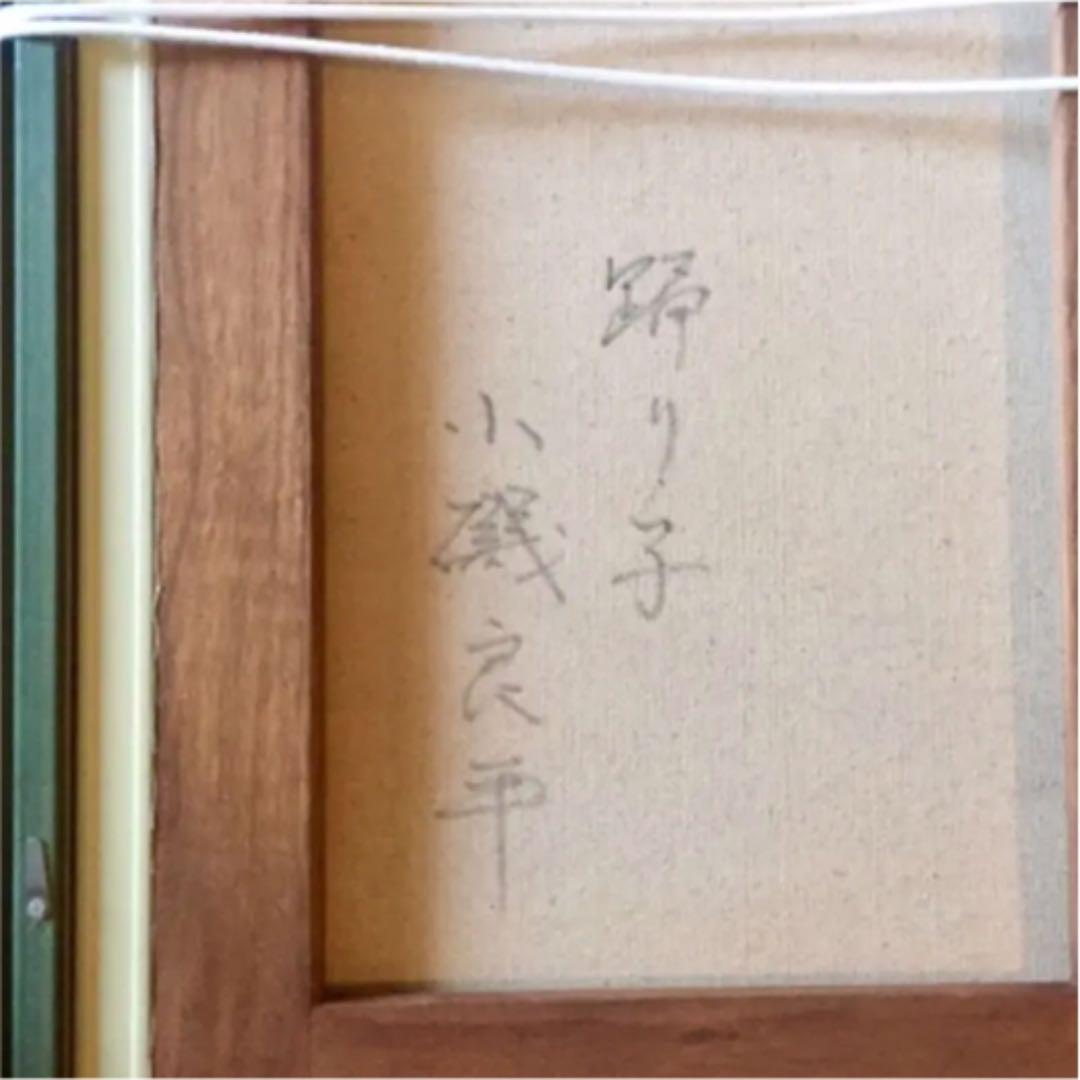 踊り子
小磯良平